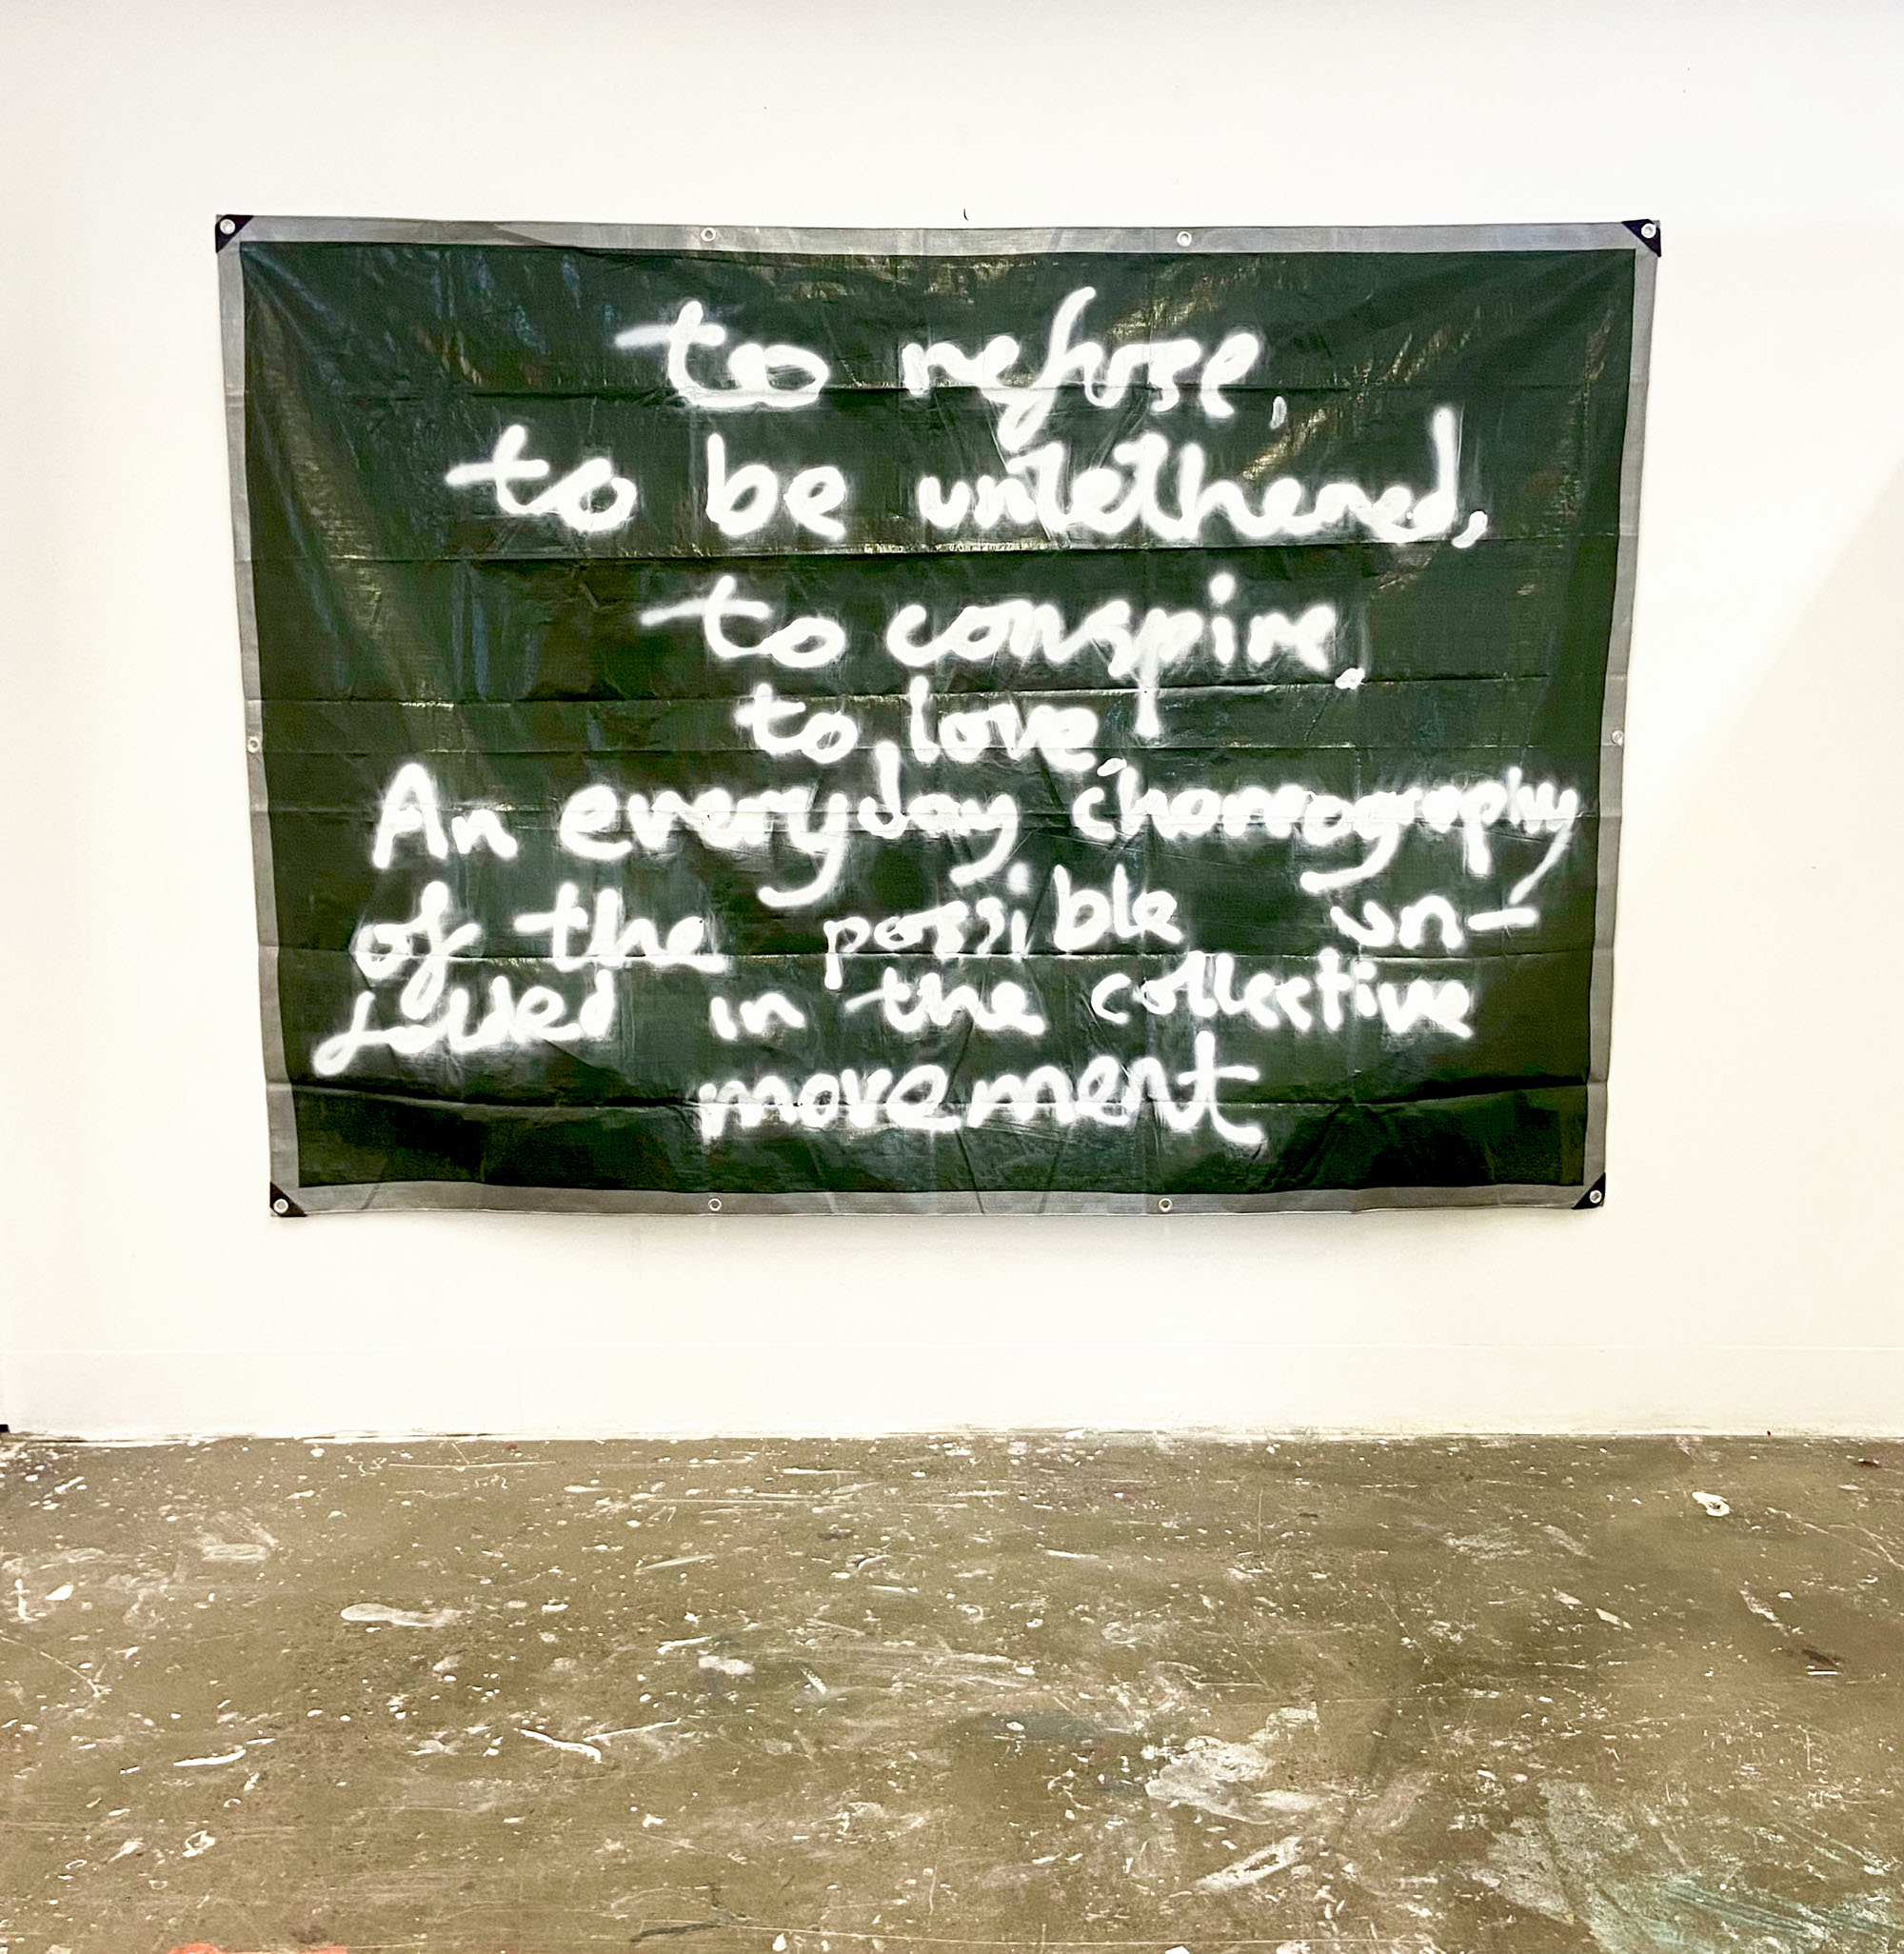 to refuse,
to be untethered,
to conspire,
to love,
An everyday choreography
of the possible un-
folded in the collective
movement